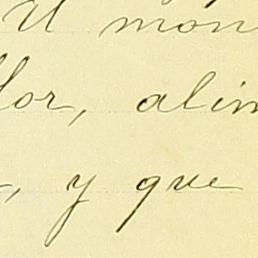 U mon
lor, alim
, y que